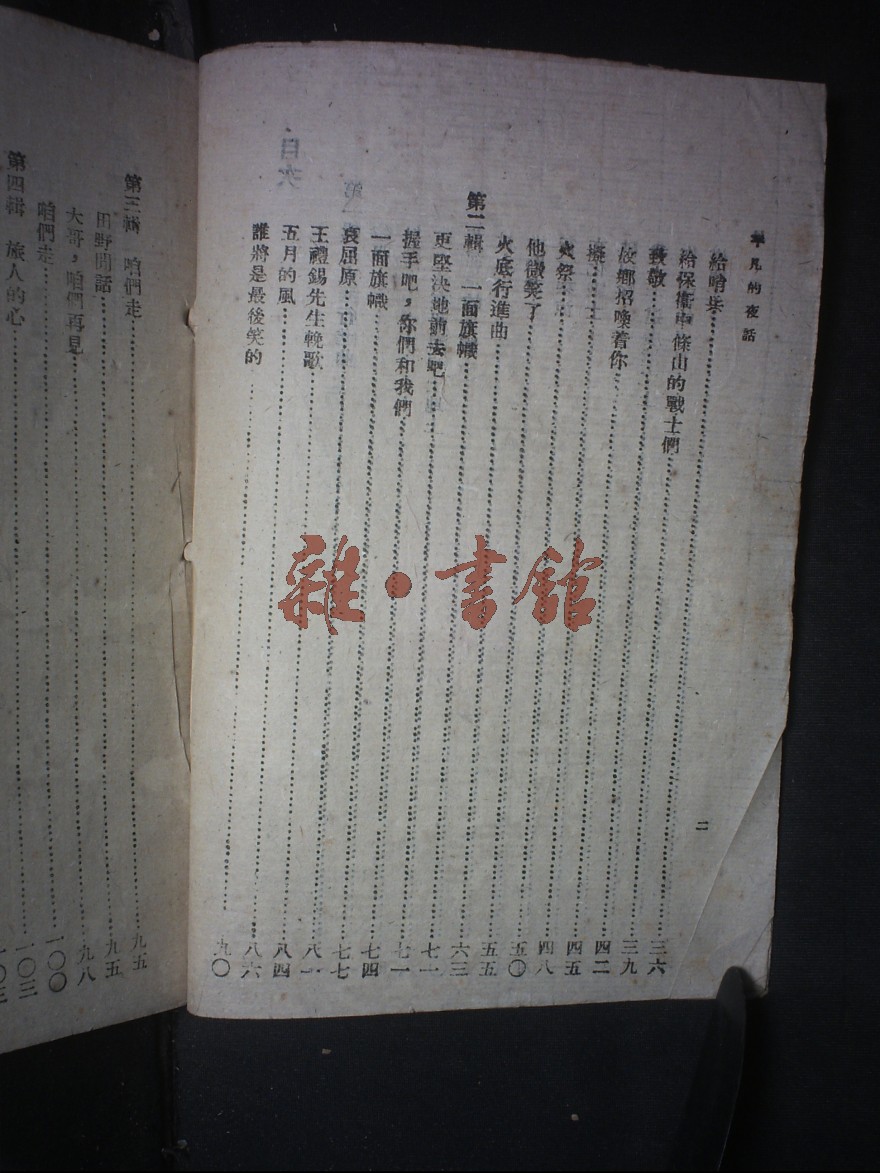 平凡的夜話
二
給哨兵……三六
給保衞中條山的戰士們……三九
致敬……四二
故鄉招喚着你……四五
……四八
火祭……五〇
他微笑了……五五
火底行進曲……六三
第二輯 一面旗幟……七一
更堅決地前去吧……七一
握手吧，你們和我們……七四
一面旗幟……七七
哀屈原……八一
王禮錫先生輓歌……八四
五月的風……八六
誰將是最後笑的……九〇
第三輯 咱們走……九五
田野閒話……九五
大哥，咱們再見……九八
咱們走……一〇〇
第四輯 旅人的心……一〇三
雜·書館